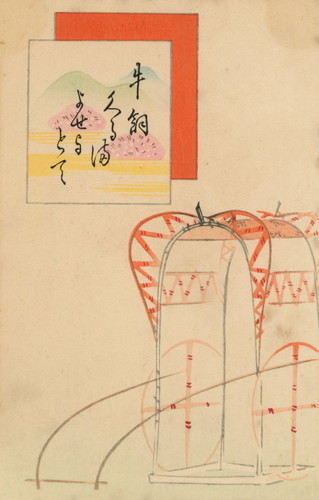 牛飼
くる満
よせよ
とて